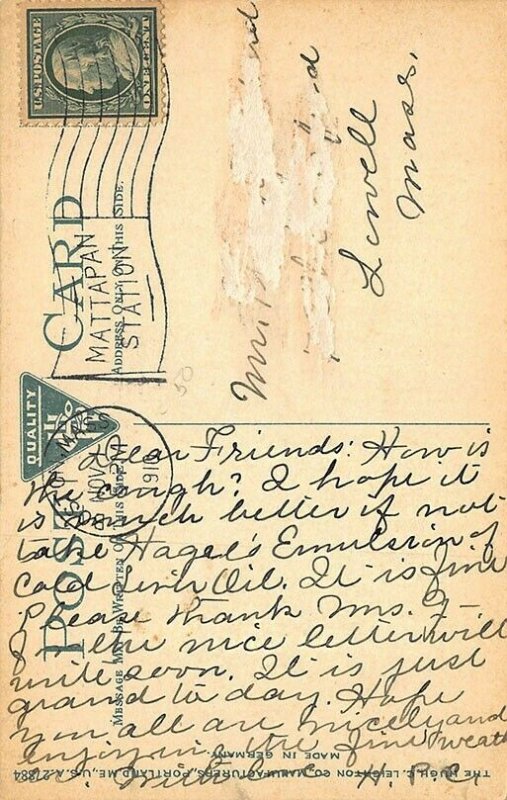 U.S. POSTAGE
ONE CENT
MATTAPAN
STATION
POST CARD
ADDRESS ONLY ON THIS SIDE.
MESSAGE MAY BE WRITTEN ON THIS SIDE
QUALITY
BOSTON, MASS.
NOV
191
Lowell
Mass.
Dear Friends: How is
the cough? I hope it
is much better if not
take Hagel's Emulsion of
Cold Liver Oil. It is fine
Please thank Mrs. G-
for the nice letter will
write soon. It is just
grand to day. Hope
you all are nicely and
enjoying the fine weath
With love H. P. C.
THE HUGH C. LEIGHTON CO., MANUFACTURERS, PORTLAND, ME., U.S.A.
MADE IN GERMANY.